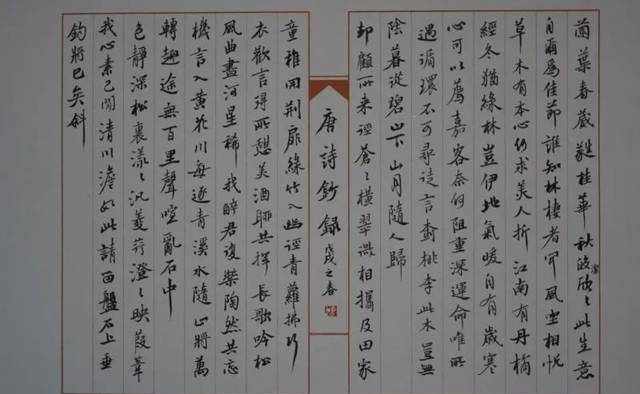 蘭葉春葳蕤桂華秋皎潔欣〻此生意
自爾為佳節誰知林棲者聞風坐相悅
草木有本心何求美人折江南有丹橘
經冬猶綠林豈伊地氣暖自有歲寒
心可以薦嘉客奈何阻重深運命唯所
遇循環不可尋徒言樹桃李此木豈無
陰暮從碧山下山月隨人歸
卻顧所來徑蒼〻橫翠微相攜及田家
唐詩鈔錄 戊戌之春
童稚開荊扉綠竹入幽徑青蘿拂行
衣歡言得所憩美酒聊共揮長歌吟松
風曲盡河星稀我醉君復樂陶然共忘
機言入黃花川每逐青溪水隨山將萬
轉趣途無百里聲喧亂石中
色靜深松裏漾〻汎菱荇澄〻映葭葦
我心素已閒清川澹如此請留盤石上垂
釣將已矣斜